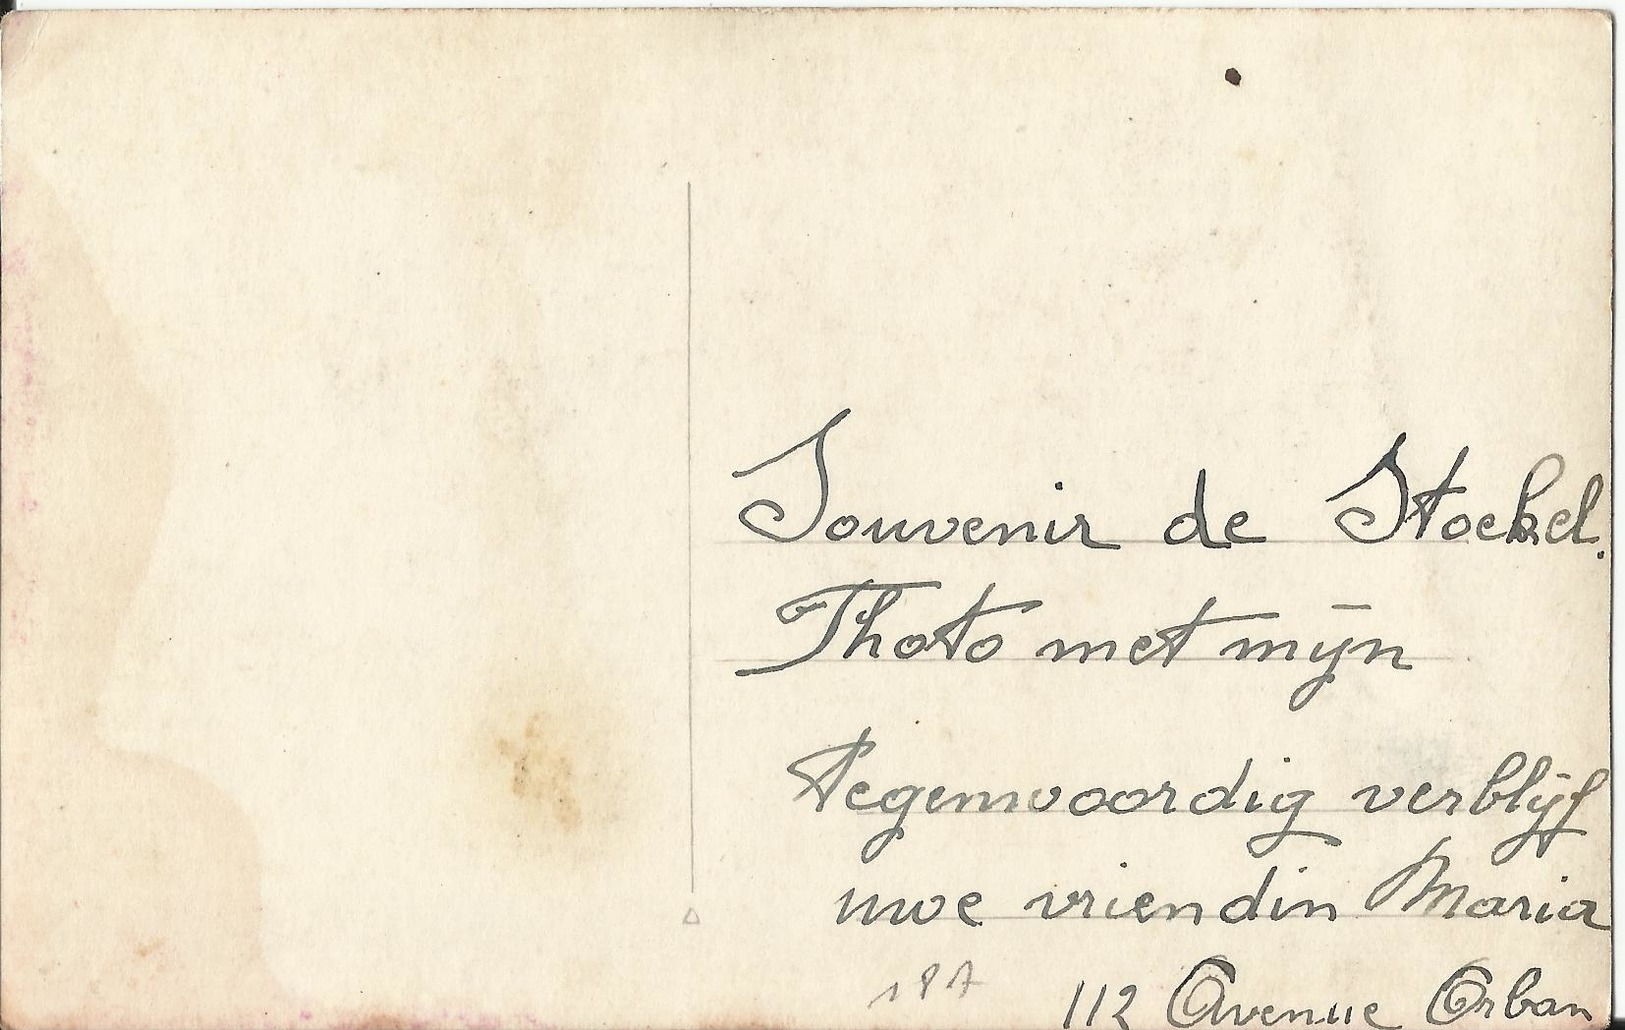 Souvenir de Stockel.
Photo met mijn
tegenwoordig verblijf
uwe vriendin Maria
187
112 Avenue Orban